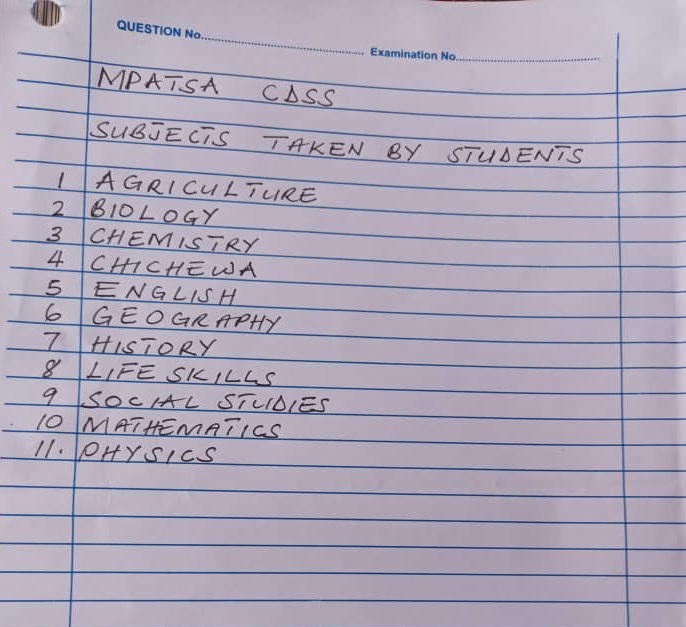 QUESTION No.......................................... Examination No..........................................
MPATSA CDSS
SUBJECTS TAKEN BY STUDENTS
1 AGRICULTURE
2 BIOLOGY
3 CHEMISTRY
4 CHICHEWA
5 ENGLISH
6 GEOGRAPHY
7 HISTORY
8 LIFE SKILLS
9 SOCIAL STUDIES
10 MATHEMATICS
11. PHYSICS